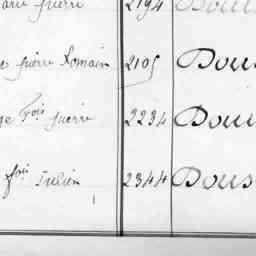 arie pierre 2194 Dou
e pierre Romain 2105 Dou
ge fois pierre 2234 Dou
fois Julien 2344 Dous